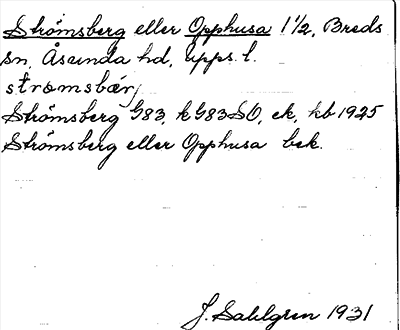 Strömsberg eller Opphusa 1 1/2, Breds
sn, Åsunda hd, Upps. l.
strømsbærj
Strömsberg G83, kG83SO, ek, kb 1925
Strömsberg eller Opphusa bek.
J. Sahlgren 1931